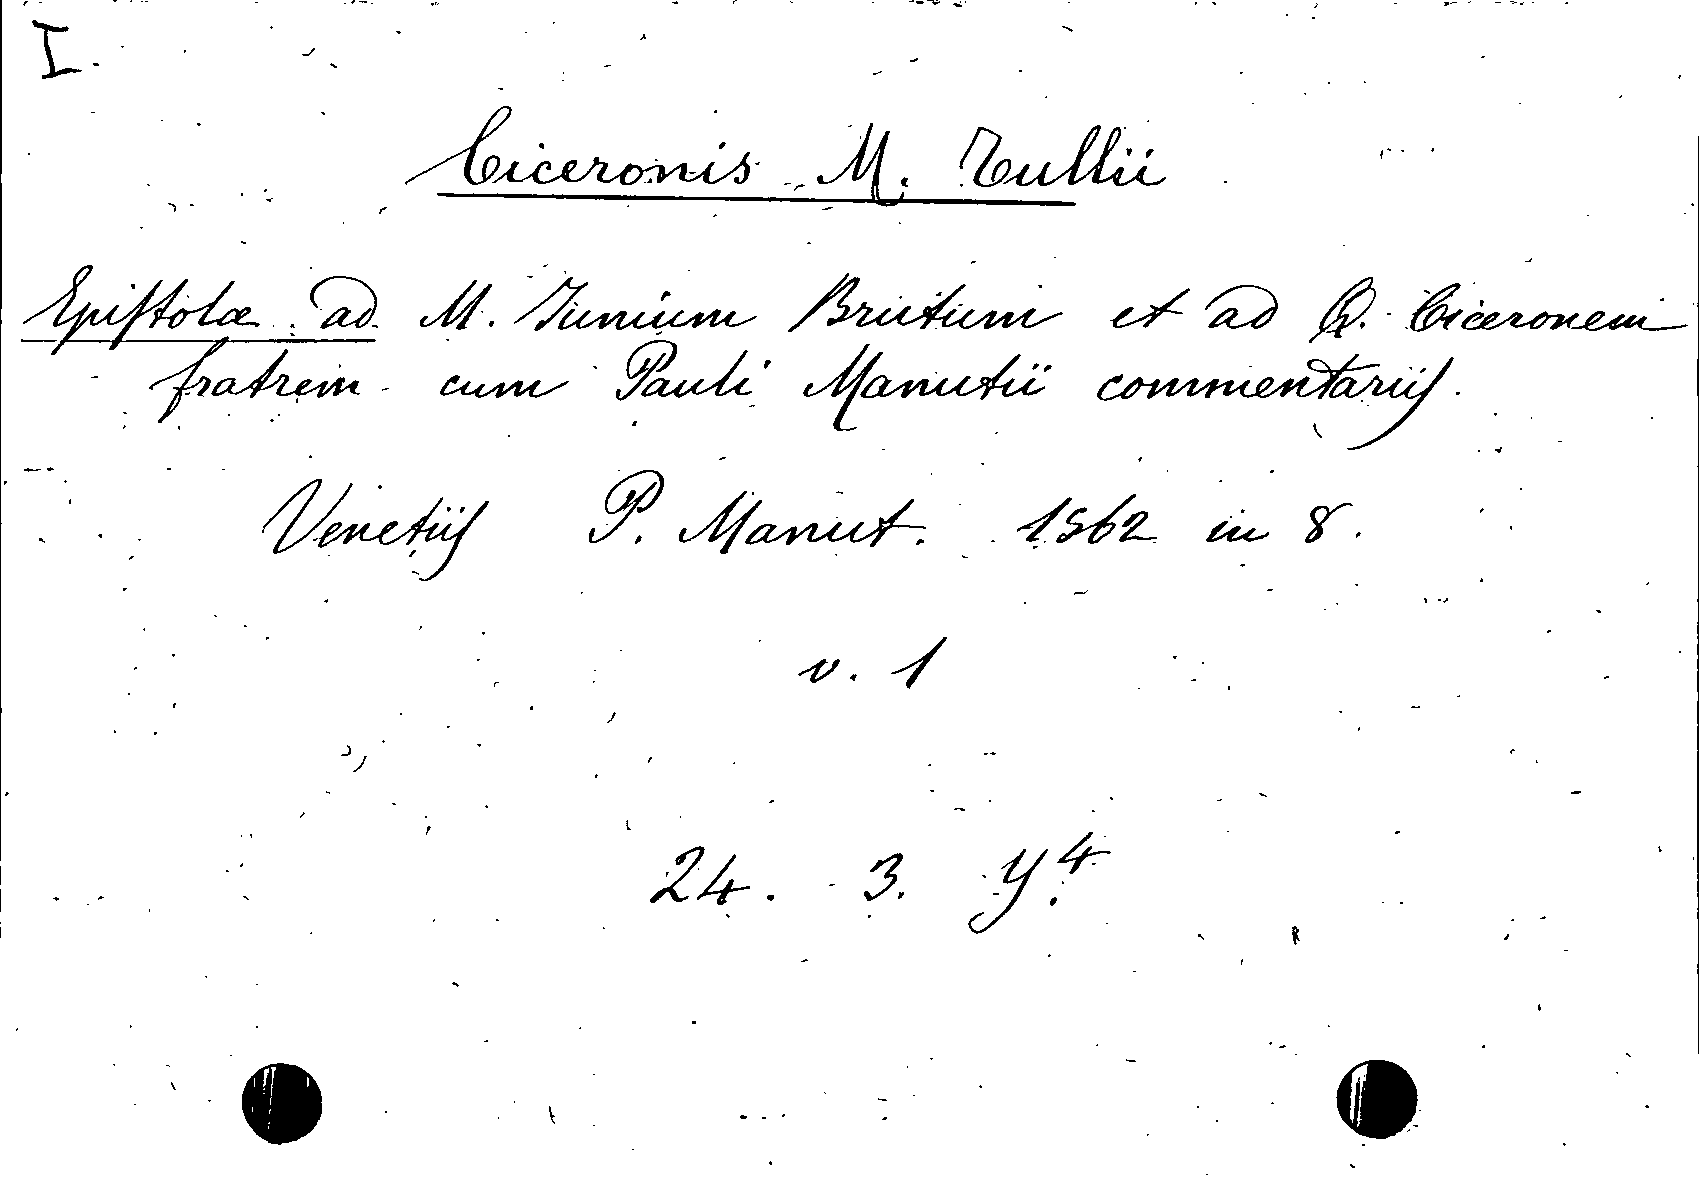 I.
Ciceronis M. Tullii
Epistolæ ad M. Iunium Brutum et ad Q. Ciceronem
fratrem cum Pauli Manutii commentariis.
Venetiis P. Manut. 1562 in 8.
v. 1
24. 3. Y⁴.